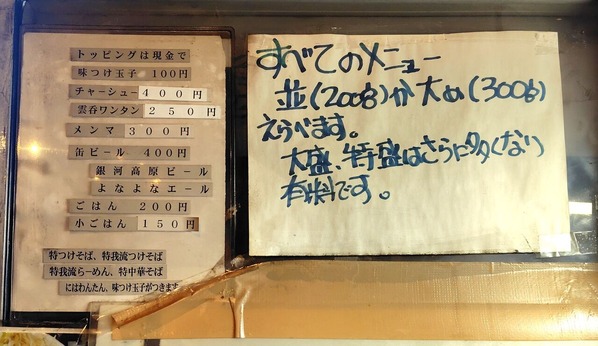 トッピングは現金で
味つけ玉子 100円
チャーシュー 400円
雲呑ワンタン 250円
メンマ 300円
缶ビール 400円
銀河高原ビール
よなよなエール
ごはん 200円
小ごはん 150円
特つけそば、特我流つけそば
特我流らーめん、特中華そば
にはわんたん、味つけ玉子がつきます
すべてのメニュー
並(200g)か大め(300g)
えらべます。
大盛、特盛はさらに多くなり
有料です。